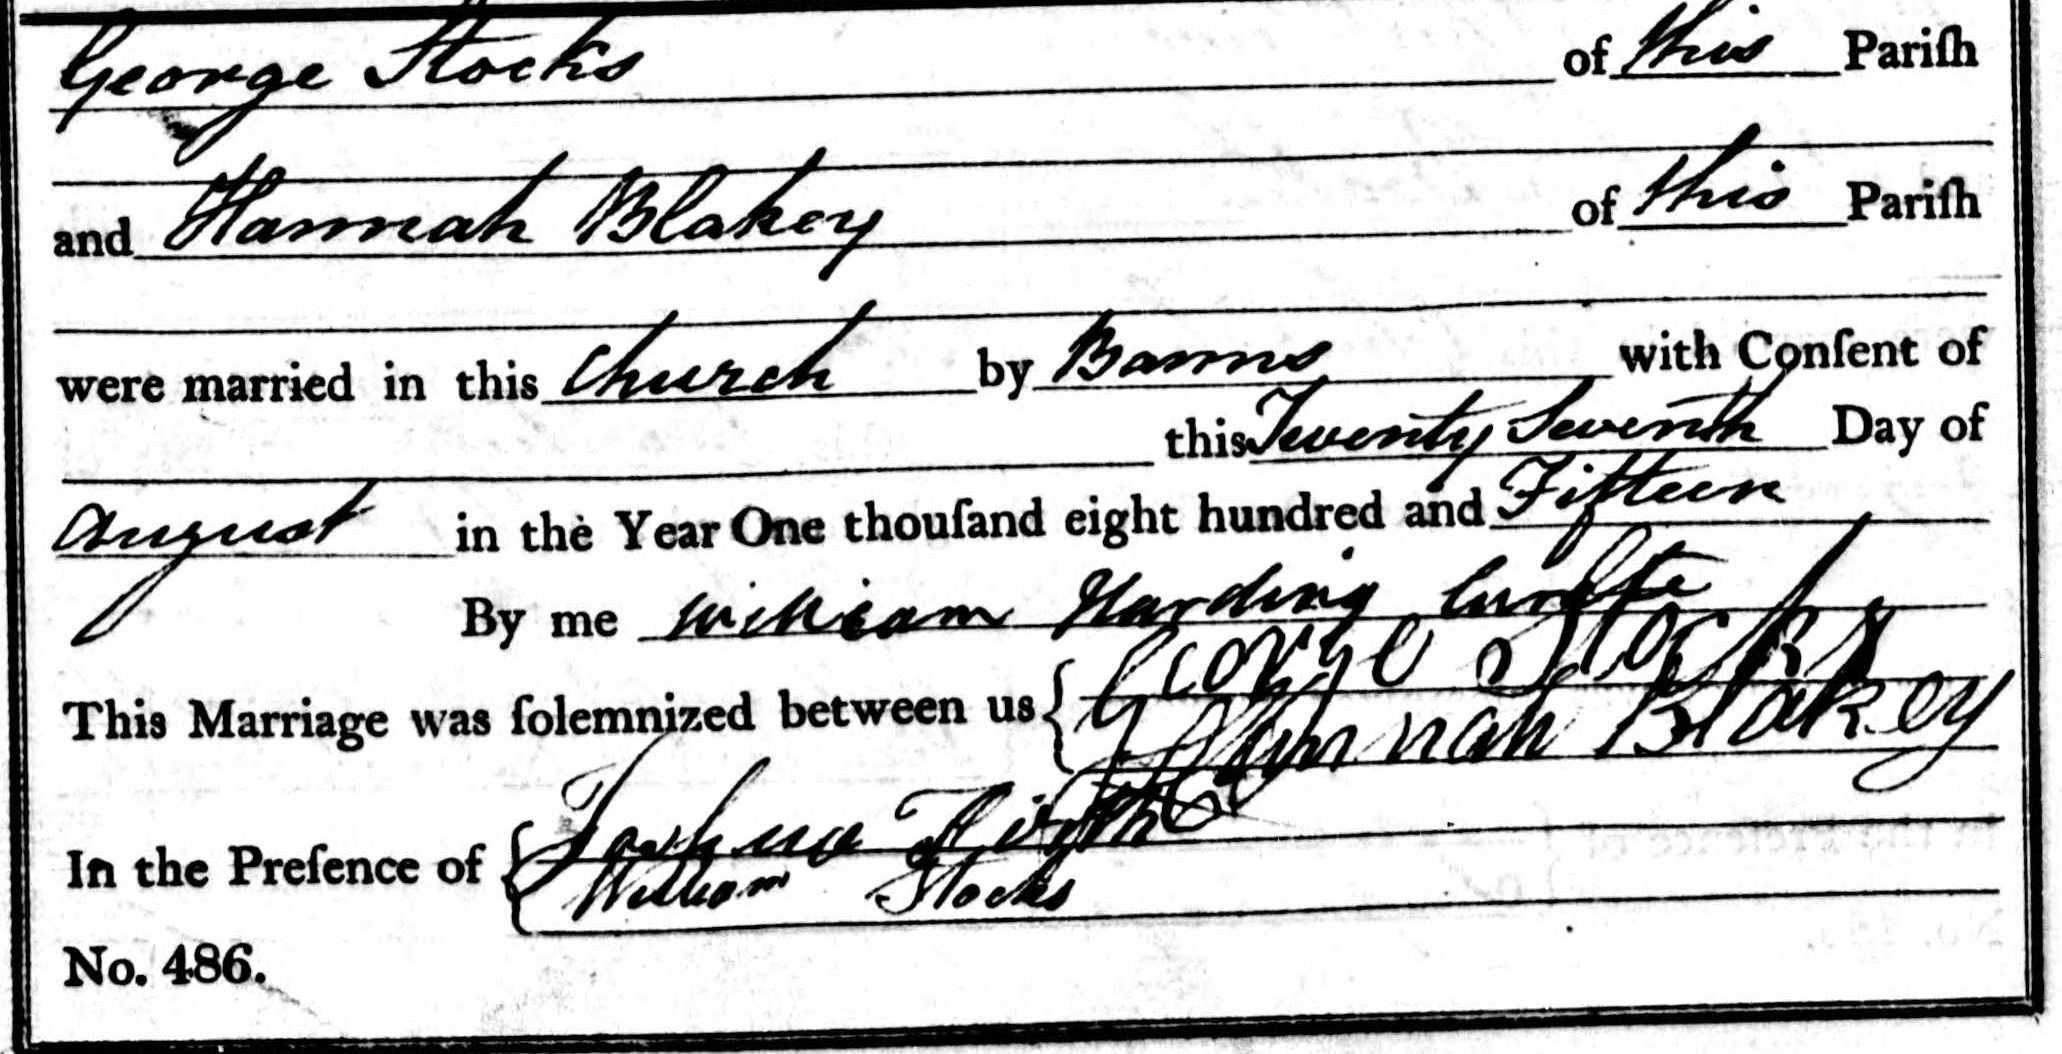 George Stocks of this Pariſh
and Hannah Blakey of this Pariſh
were married in this Church by Banns with Conſent of
this Twenty Seventh Day of
August in the Year One thouſand eight hundred and Fifteen
By me William Harding Curate
This Marriage was ſolemnized between us { George Stocks
Hannah Blakey
In the Preſence of { Joshua Firth
William Stocks
No. 486.